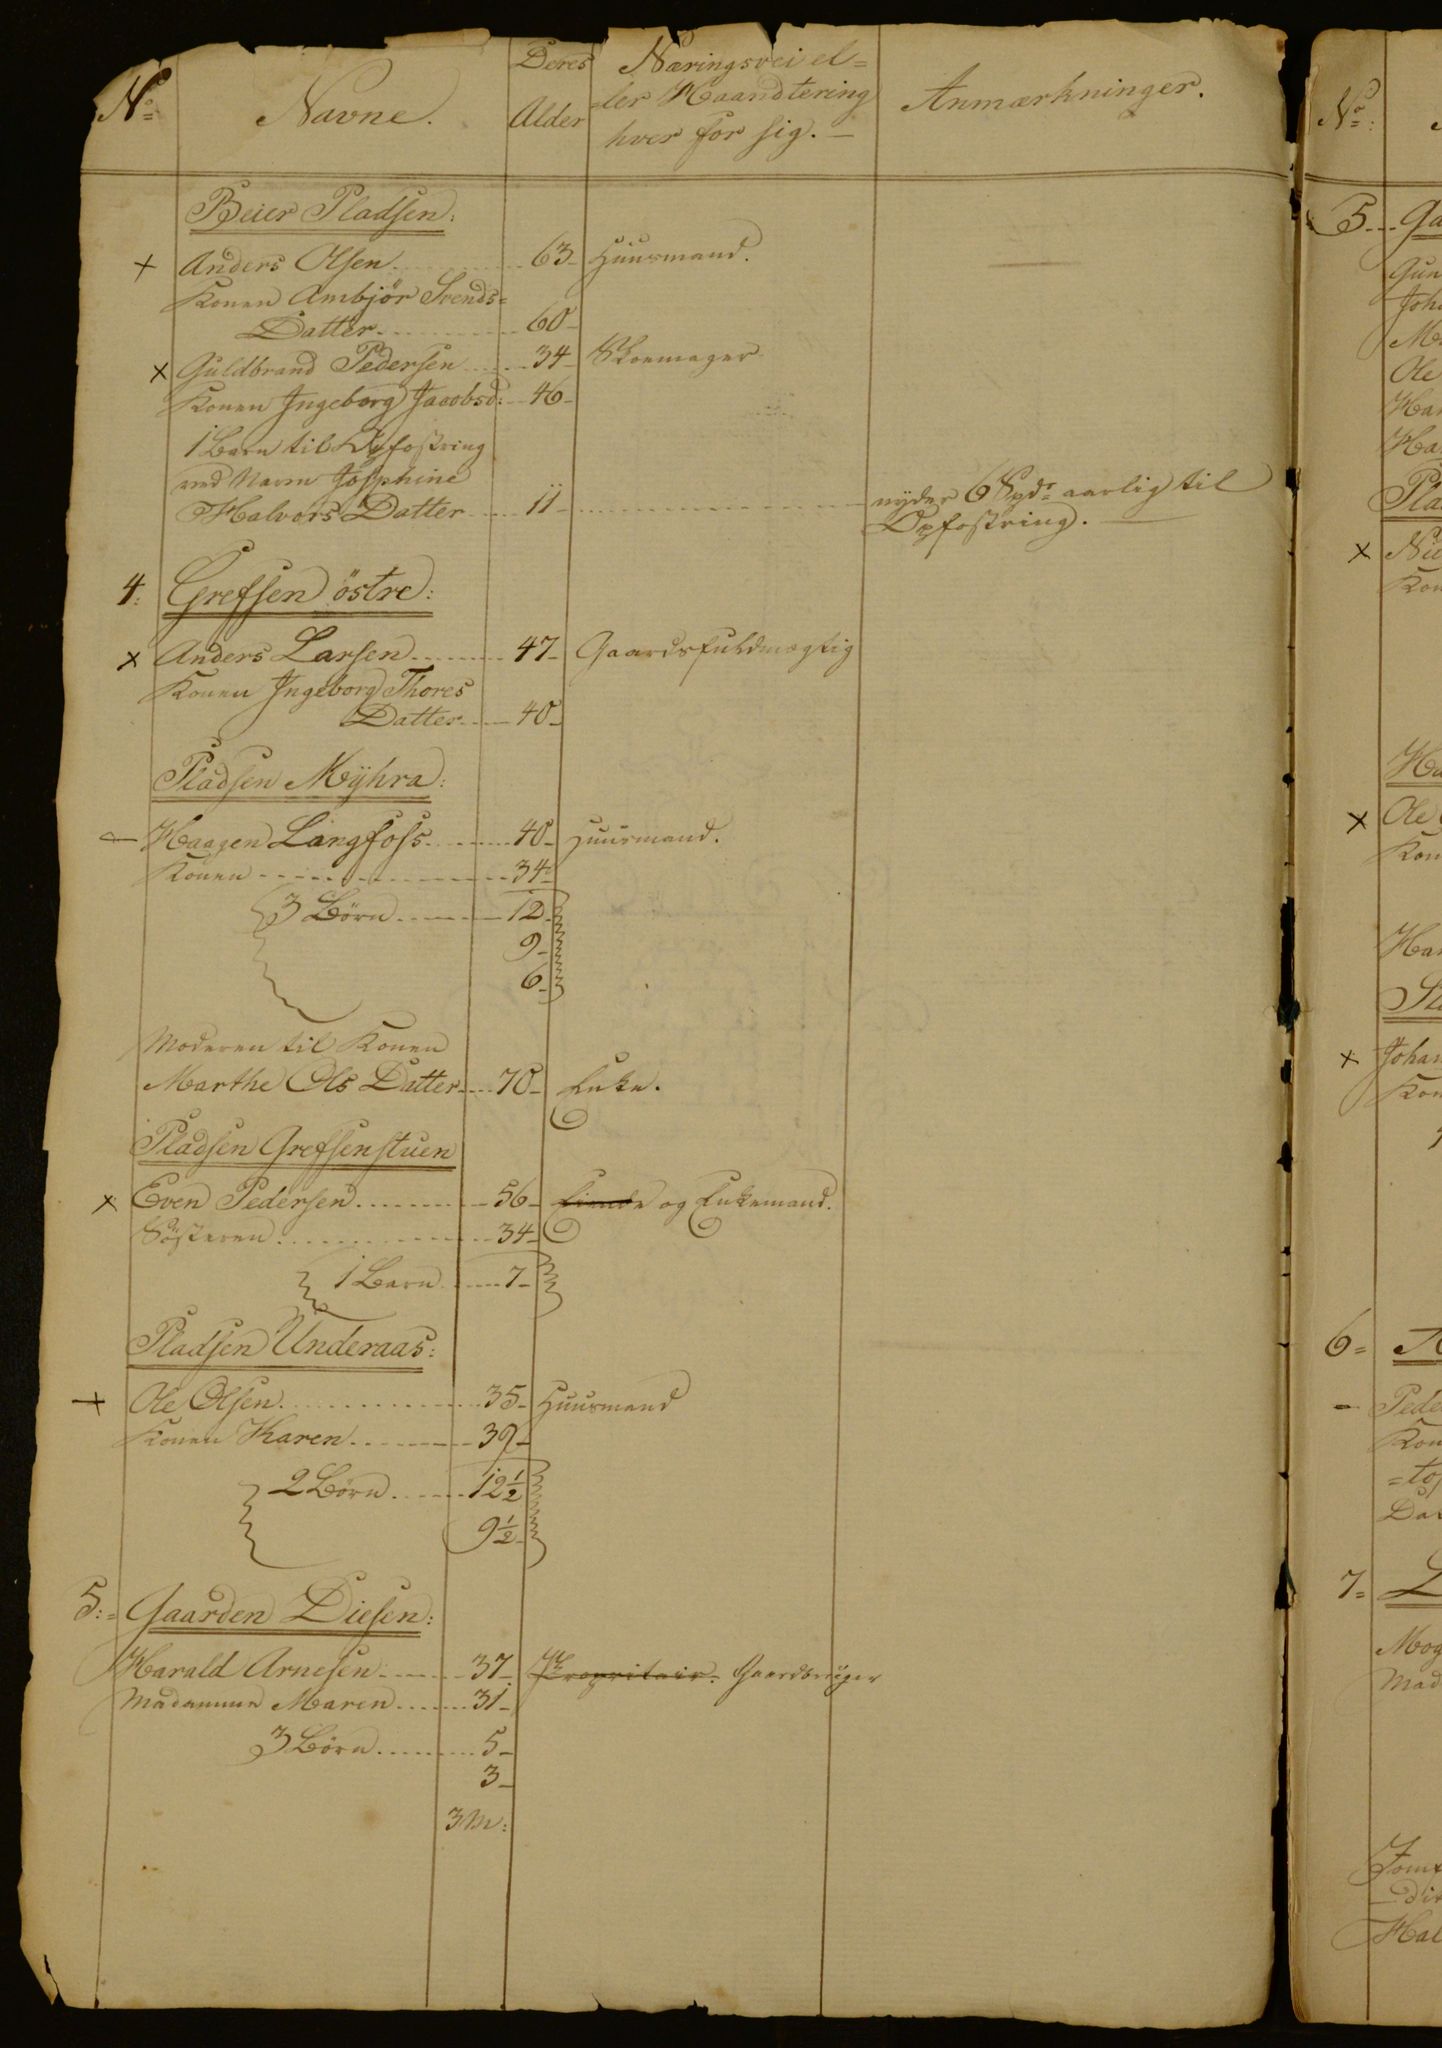 No Navne. Deres Alder Næringsvei el=
ler Haandtering
hver for sig. — Anmærkninger.
Beier Pladsen:
x Anders Olsen 63 Huusmand.
Konen Ambjör Svends=
Datter 60
x Guldbrand Pedersen 34 Skoemager
Konen Ingeborg Jacobsd: 46
1 Barn til Opfostring
ved Navn Josephine
Halvors Datter 11 nyder 6 Spdr aarlig til
Opfostring.
4: Grefsen östre:
x Anders Larsen 47 Gaardsfuldmægtig
Konen Ingeborg Thores
Datter 40
Pladsen Mÿhra:
Haagen Langfoss 40 Huusmand.
Konen 34
3 Börn 12
9
6
Moderen til Konen
Marthe Ols Datter 70 Enke.
Pladsen Grefsenstuen
x Even Pedersen 56 og Enkemand.
Sösteren 34
1 Barn 7
Pladsen Underaas:
x Ole Olsen 35 Huusmand
Konen Karen 39
2 Börn 12½
9½
5: Gaarden Diesen:
Harald Arnesen 37 Propritair. Gaardbruger
Madammen Maren 31
3 Börn 5
3
3 M:
No:
5 Ga
Gun
Joh
Ole
Han
Pla
x
Kon
x Ole
Kon
Han
x Johan
Kon
6=
Pede
Kon
=to
Dat
7=
Mog
Mad
Jomf
di
Hal